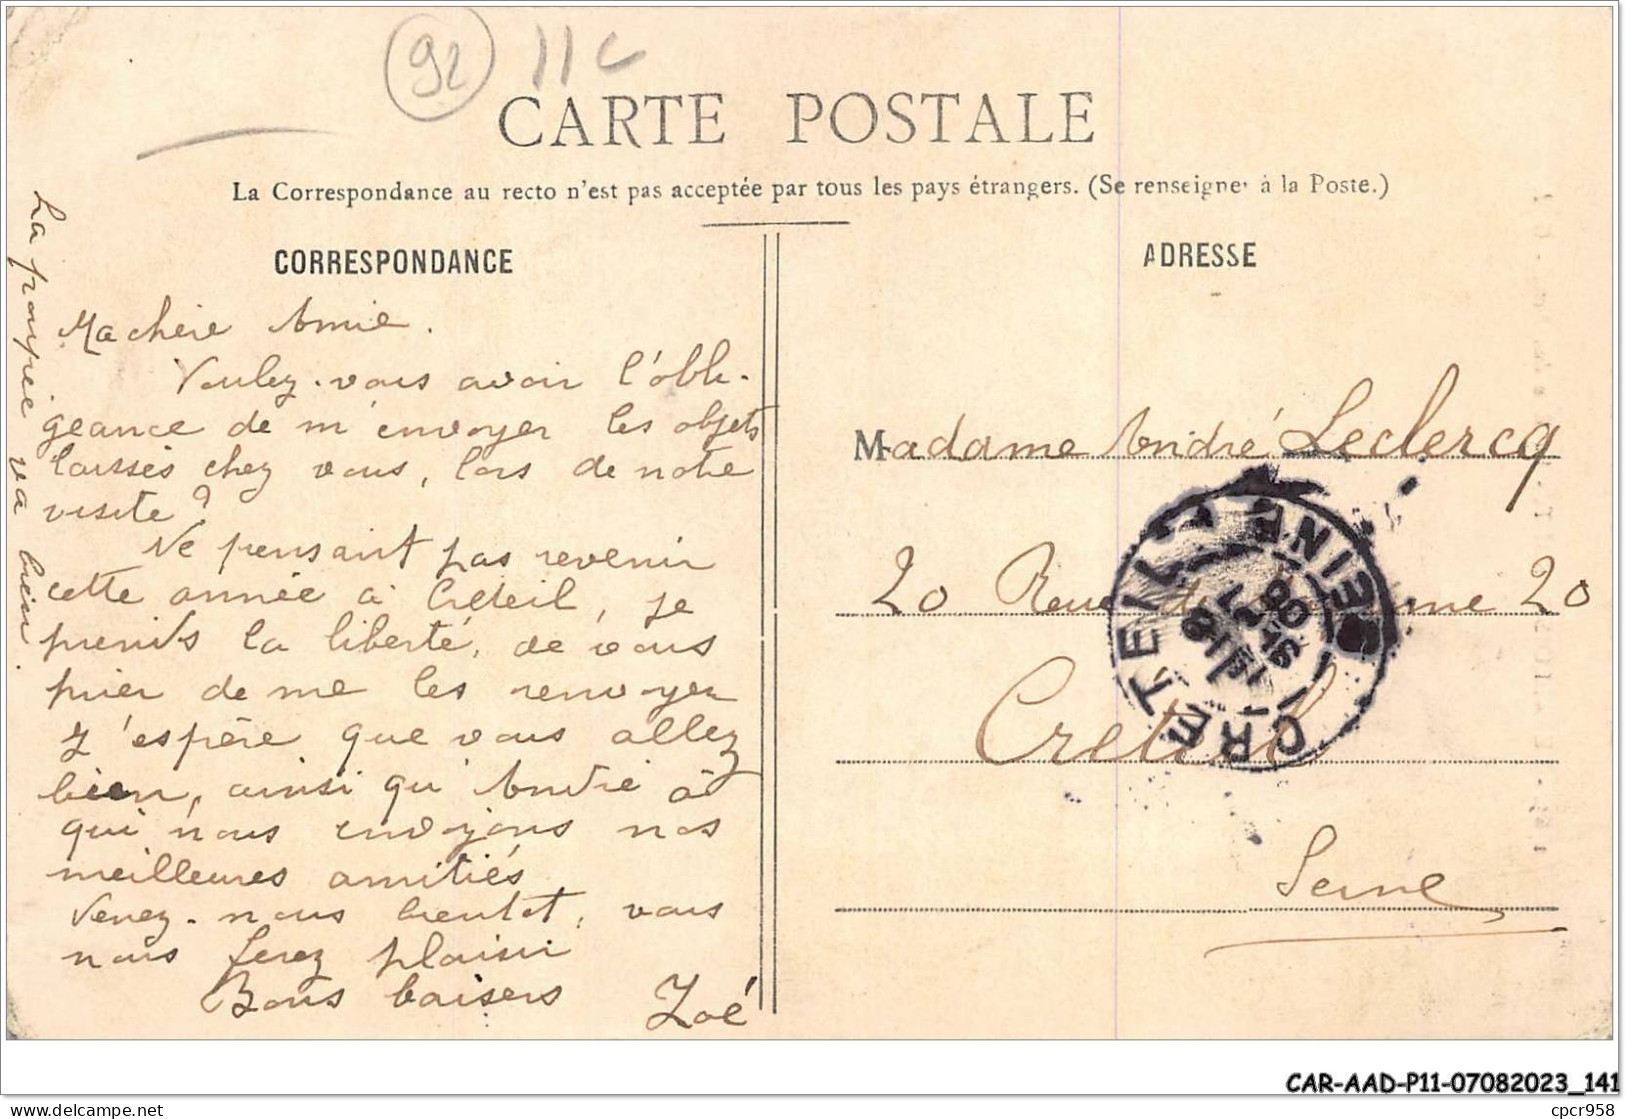 92 11c
CARTE POSTALE
La Correspondance au recto n'est pas acceptée par tous les pays étrangers. (Se renseigner à la Poste.)
CORRESPONDANCE
Ma chère Amie.
Voulez-vous avoir l'obli-
geance de m'envoyer les objets
laissés chez vous, lors de notre
visite?
Ne pensant pas revenir
cette année à Créteil, je
prends la liberté, de vous
prier de me les renvoyer
J'espère que vous allez
bien, ainsi qu'André à
qui nous envoyons nos
meilleures amitiés
Venez-nous bientôt, vous
nous ferez plaisir
Bons baisers Zoé
La poupée va bien.
ADRESSE
Madame André Leclercq
20 Rue 20
Creteil
Seine
CRETEIL SEINE
CAR-AAD-P11-07082023_141
cpcr958